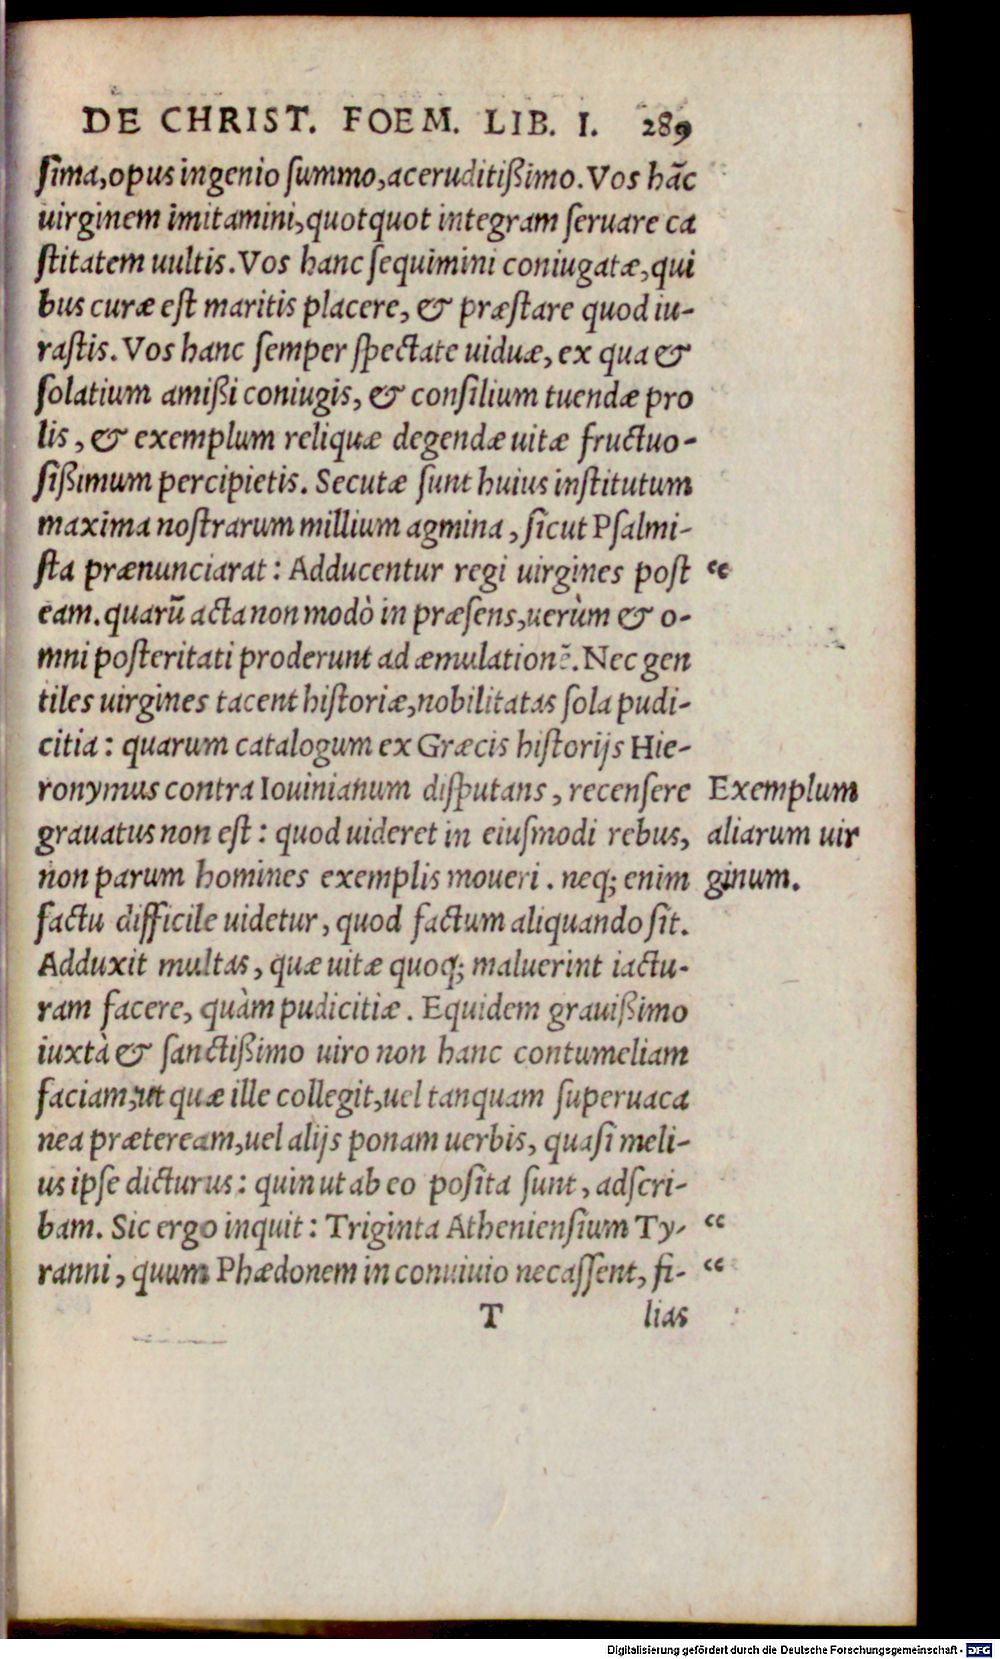 DE CHRIST. FOEM. LIB. I. 289
ſima, opus ingenio ſummo, ac eruditißimo. Vos hãc
uirginem imitamini, quotquot integram ſeruare ca
ſtitatem uultis. Vos hanc ſequimini coniugatæ, qui
bus curæ eſt maritis placere, & præſtare quod iu-
raſtis. Vos hanc ſemper ſpectate uiduæ, ex qua &
ſolatium amißi coniugis, & conſilium tuendæ pro
lis, & exemplum reliquæ degendæ uitæ fructuo-
ſißimum percipietis. Secutæ ſunt huius inſtitutum
maxima noſtrarum millium agmina, ſicut Pſalmi-
ſta prænunciarat: Adducentur regi uirgines poſt “
eam. quarũ acta non modò in præſens, uerùm & o-
mni poſteritati proderunt ad æmulationẽ. Nec gen
tiles uirgines tacent hiſtoriæ, nobilitatas ſola pudi-
citia: quarum catalogum ex Græcis hiſtorijs Hie-
ronymus contra Iouinianum diſputans, recenſere
grauatus non eſt: quod uideret in eiuſmodi rebus,
non parum homines exemplis moueri. neq; enim
factu difficile uidetur, quod factum aliquando ſit.
Adduxit multas, quæ uitæ quoq; maluerint iactu-
ram facere, quàm pudicitiæ. Equidem grauißimo
iuxtà & ſanctißimo uiro non hanc contumeliam
faciam, ut quæ ille collegit, uel tanquam ſuperuaca
nea præteream, uel alijs ponam uerbis, quaſi meli-
us ipſe dicturus: quin ut ab eo poſita ſunt, adſcri-
bam. Sic ergo inquit: Triginta Athenienſium Ty- “
ranni, quum Phædonem in conuiuio necaſſent, fi- “
T lias
Exemplum
aliarum uir
ginum.
Digitalisierung gefördert durch die Deutsche Forschungsgemeinschaft - DFG